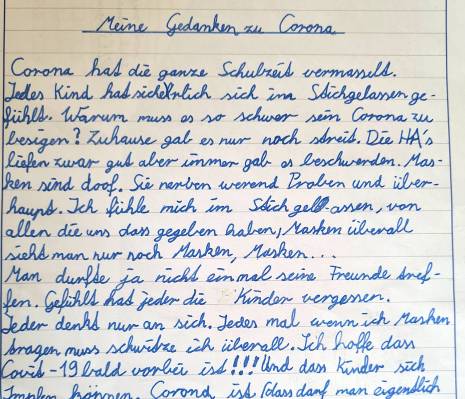 Meine Gedanken zu Corona
Corona hat die ganze Schulzeit vermasselt.
Jedes Kind hat sich sich im Stichgelassen ge-
fühlt. Warum muss es so schwer sein Corona zu
besigen? Zuhause gab es nur noch streit. Die HA's
liefen zwar gut aber immer gab es beschwerden. Mas-
ken sind doof. Sie nerven werend Proben und über-
haupt. Ich fühle mich im Stich gelassen, von
allen die uns dass gegeben haben, Masken überall
sieht man nur noch Masken, Masken...
Man durfte ja nicht einmal seine Freunde tref-
fen. Gefühlt hat jeder die Kinder vergessen.
Jeder denkt nur an sich. Jedes mal wenn ich Masken
tragen muss schwitze ich überall. Ich hoffe dass
Covid-19 bald vorbei ist!!! Und dass Kinder sich
Impfen können. Corona ist darf man eigentlich